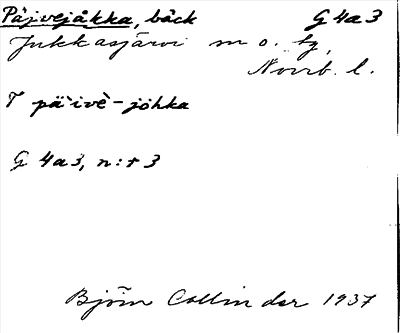 Päjvejåkka, bäck G 4a3
Jukkasjärvi sn o. tg,
Norrb. l.
T päìvè-johka
G 4a3, n:r 3
Björn Collinder 1937